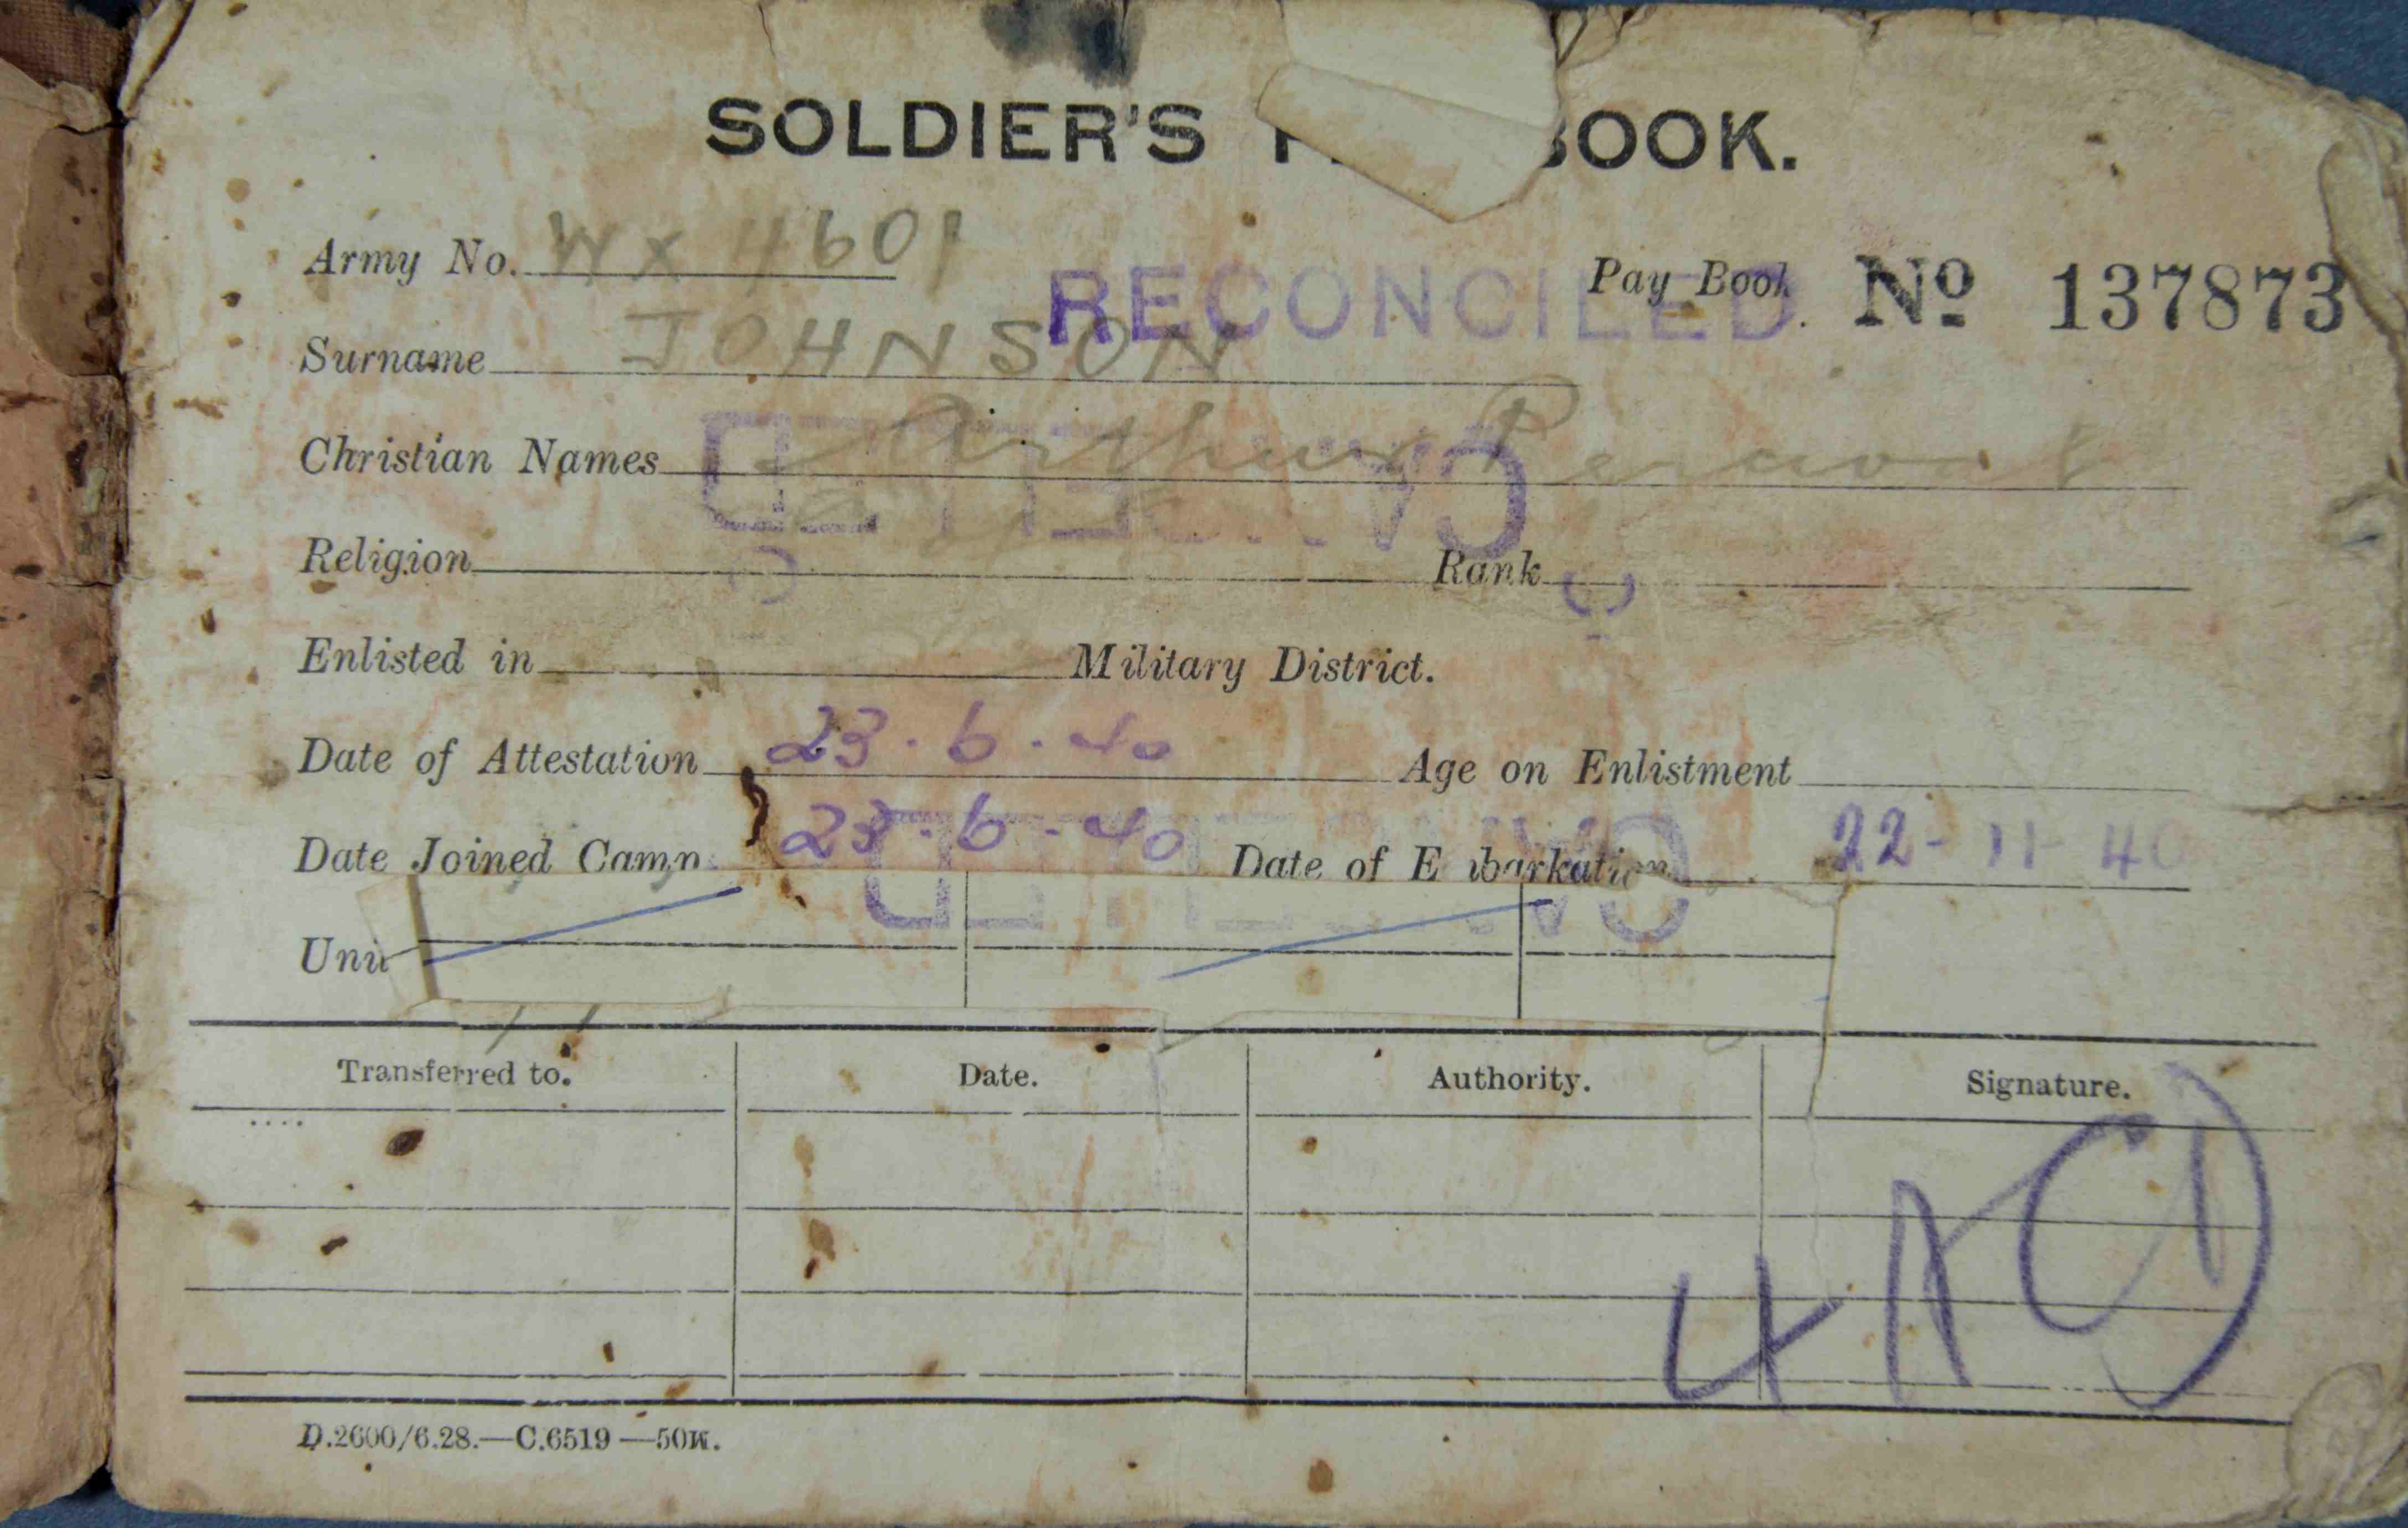 SOLDIER'S BOOK.
Army No. WX 4601
RECONCILED
Pay Book Nº 137873
Surname JOHNSON
Christian Names Arthur Percival
CANCELLED
Religion Rank
Enlisted in Military District.
Date of Attestation 23.6.40 Age on Enlistment
Date Joined Camp 23.6.40 Date of Embarkation 22-11-40
CANCELLED
Unit
Transferred to. Date. Authority. Signature.
D.2600/6.28.—C.6519—50M.